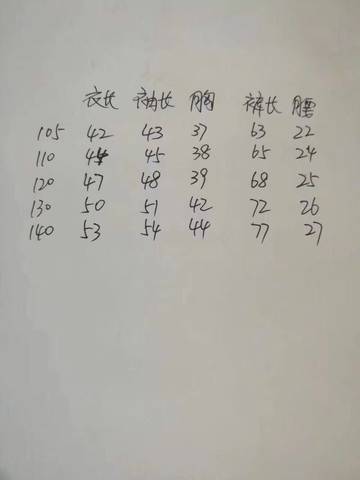 衣长 袖长 胸 裤长 腰
105 42 43 37 63 22
110 44 45 38 65 24
120 47 48 39 68 25
130 50 51 42 72 26
140 53 54 44 77 27